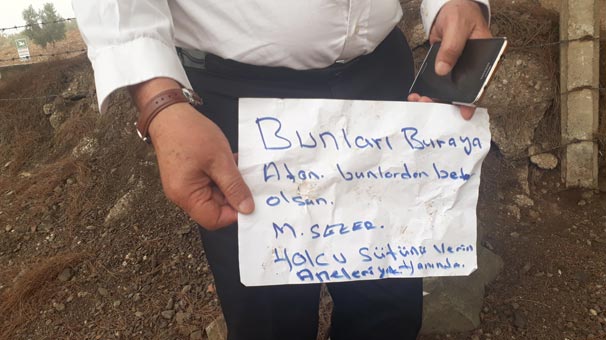 Bunları Buraya
Atan. bunlardan beter
olsun.
M. SEZER.
YOLCU sütünü Verin
Aneleri yok yanında.